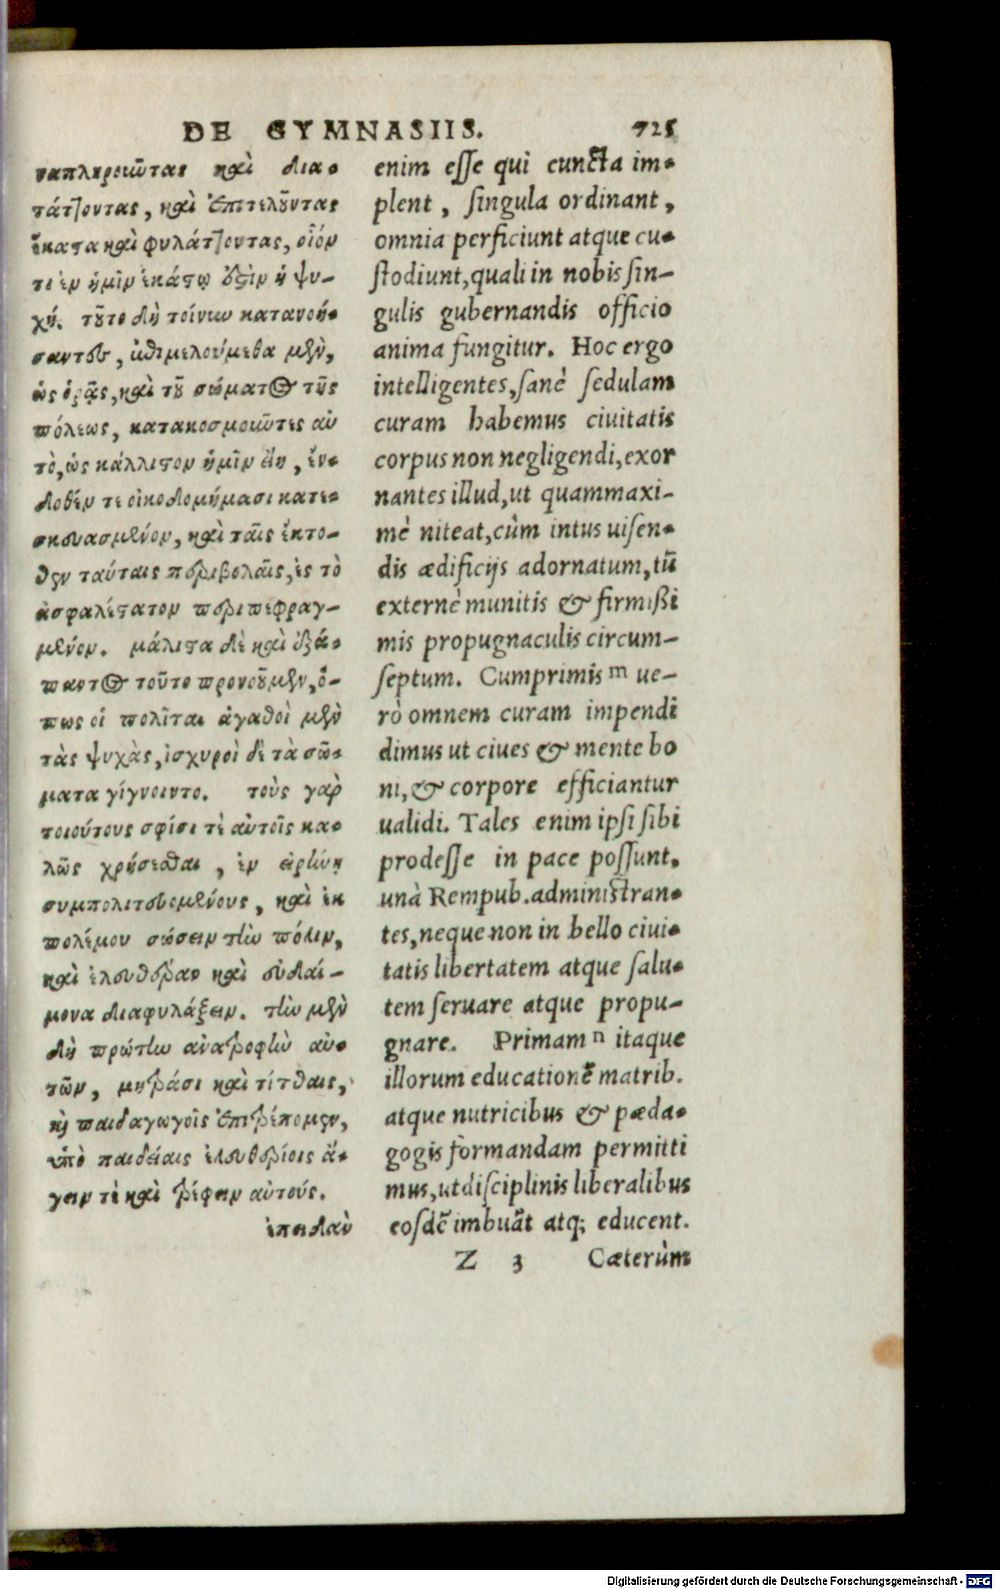 DE GYMNASIIS. 725
ναπληροῦντας καὶ δια-
τάττοντας, καὶ ἐπιτελοῦντας
ἕκαστα καὶ φυλάττοντας, οἷόν
τι ἐν ἡμῖν ἑκάστῳ ἐστὶν ἡ ψυ-
χή. τοῦτο δὴ τοίνυν κατανοή-
σαντες, ἐπιμελούμεθα μὲν,
ὡς ὁρᾷς, καὶ τοῦ σώματος τῆς
πόλεως, κατακοσμοῦντες αὐ
τὸ, ὡς κάλλιστον ἡμῖν εἴη, ἔν-
δοθέν τε οἰκοδομήμασι κατε-
σκευασμένον, καὶ ταῖς ἔκτο-
θεν ταύταις περιβολαῖς, ἐς τὸ
ἀσφαλέστατον περιπεφραγ-
μένον. μάλιστα δὲ καὶ ἐξά-
παντος τοῦτο προνοοῦμεν, ὅ-
πως οἱ πολῖται ἀγαθοὶ μὲν
τὰς ψυχὰς, ἰσχυροὶ δὲ τὰ σώ-
ματα γίγνοιντο. τοὺς γὰρ
τοιούτους σφίσι τὲ αὐτοῖς κα-
λῶς χρήσεσθαι, ἐν εἰρήνῃ
συμπολιτευομένους, καὶ ἐκ
πολέμου σώσειν τὴν πόλιν,
καὶ ἐλευθέραν καὶ εὐδαί-
μονα διαφυλάξειν. τὴν μὲν
δὴ πρώτην ἀνατροφὴν αὐ-
τῶν, μητράσι καὶ τίτθαις,
καὶ παιδαγωγοῖς ἐπιτρέπομεν,
ὑπὸ παιδείαις ἐλευθερίοις ἄ-
γειν τὲ καὶ τρέφειν αὐτούς.
ἐπειδὰν
enim esse qui cuncta im-
plent, singula ordinant,
omnia perficiunt atque cu-
stodiunt, quali in nobis sin-
gulis gubernandis officio
anima fungitur. Hoc ergo
intelligentes, sanè sedulam
curam habemus ciuitatis
corpus non negligendi, exor
nantes illud, ut quammaxi-
mè niteat, cùm intus uisen-
dis ædificijs adornatum, tū
externè munitis & firmißi
mis propugnaculis circum-
septum. Cumprimis m ue-
rò omnem curam impendi
dimus ut ciues & mente bo
ni, & corpore efficiantur
ualidi. Tales enim ipsi sibi
prodesse in pace possunt,
unà Rempub. administran-
tes, neque non in bello ciui-
tatis libertatem atque salu-
tem seruare atque propu-
gnare. Primam n itaque
illorum educationē matrib.
atque nutricibus & pæda-
gogis formandam permitti
mus, ut disciplinis liberalibus
eosdē imbuāt atq; educent.
Z 3 Cæterùm
Digitalisierung gefördert durch die Deutsche Forschungsgemeinschaft - DFG